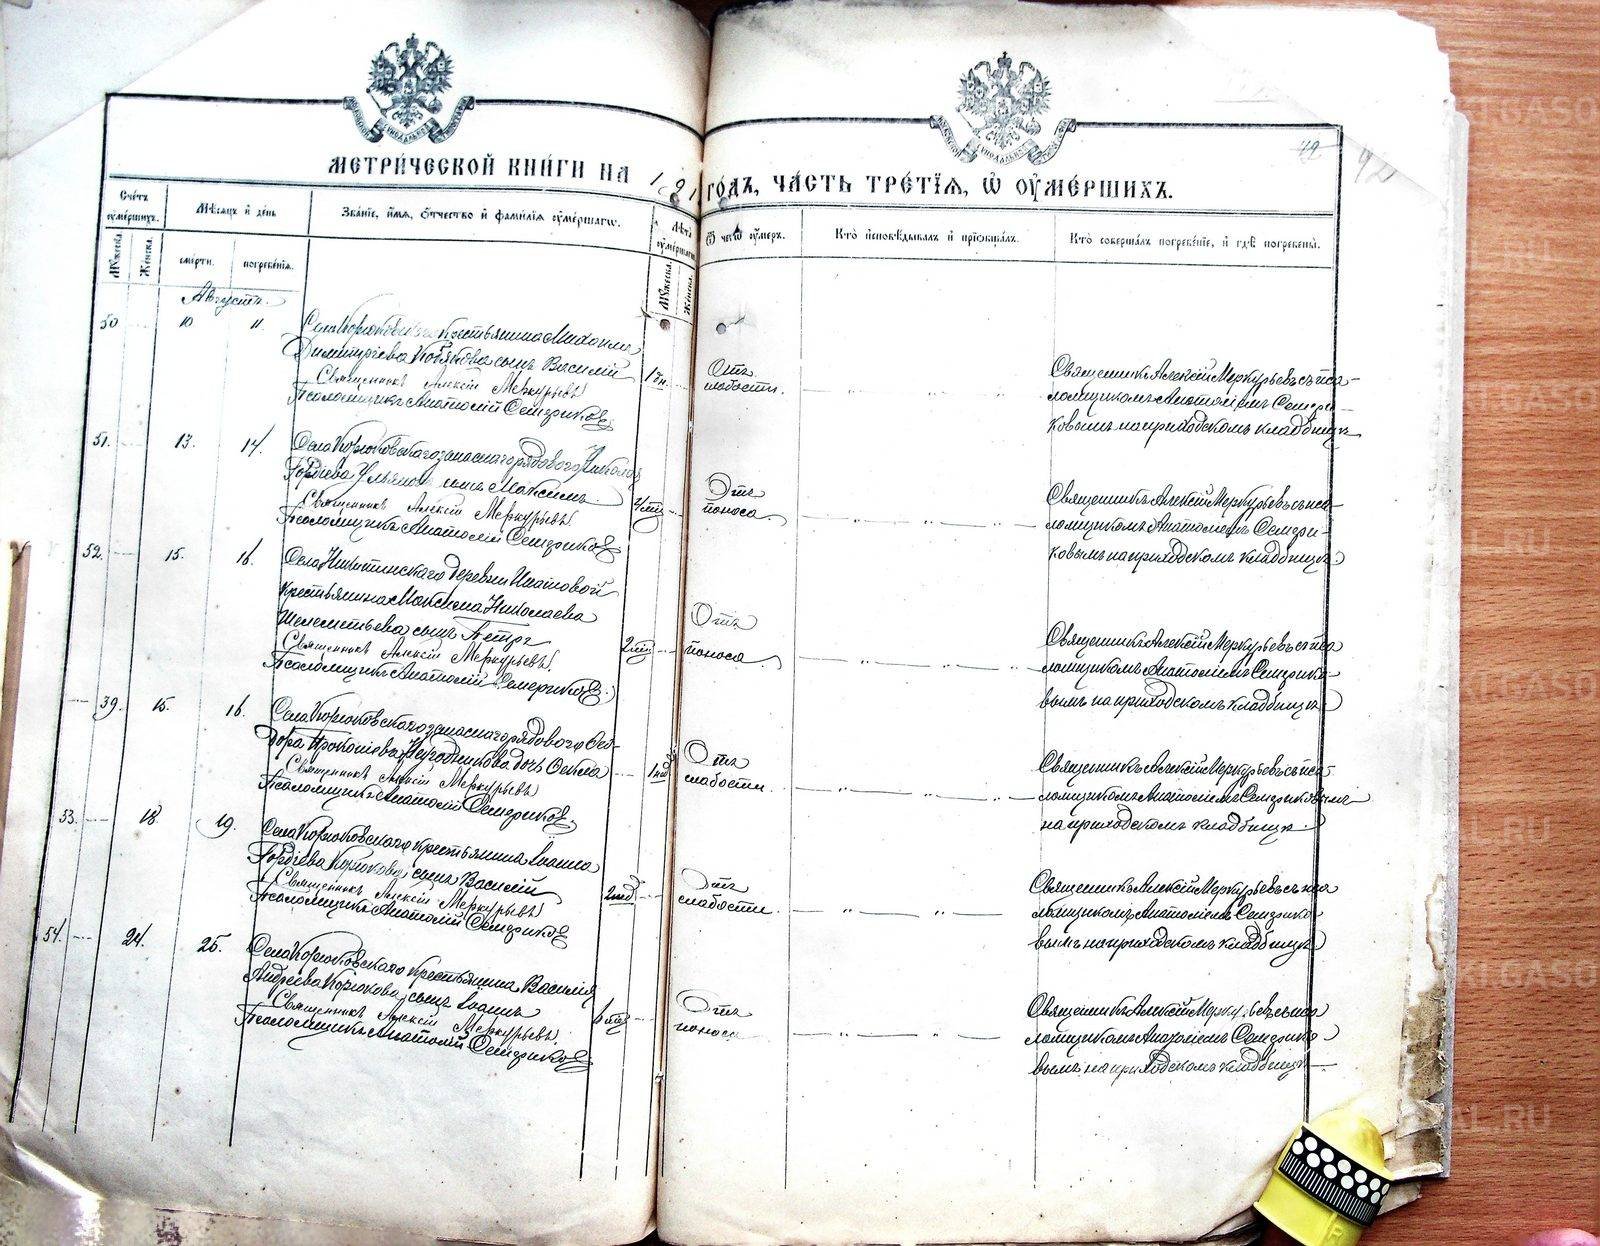 МЕТРИ́ЧЕСКОЙ КНИ́ГИ НА 1 91 ГО́ДЪ, ЧА́СТЬ ТРЕ́ТIЯ, Ѿ ОУМЕ́РШИХЪ.
42
42
Сче́тъ оуме́ршихъ.
Му́жеска.
Же́нска.
Мѣ́сяцъ и день
сме́рти.
погребе́нiя.
Зва́нiе, и́мя, о́тчество и фами́лiя оуме́ршагѡ.
Лѣ́та оуме́ршагѡ
Му́жеска.
Же́нска.
Ѿ чегѡ̀ оу́меръ.
Кто̀ исповѣ́дывалъ и прiѡбща́лъ.
Кто̀ соверша́лъ погребе́нiе, и гдѣ̀ погребены̀.
Августъ.
50 10 11.
Села Корюковскаго крестьянина Михаила
Димитріева Кобякова сынъ Василій
Священникъ Алексій Меркурьевъ
Псаломщикъ Анатолій Семериковъ
1 дн.
Отъ
слабости.
Священникъ Алексій Меркурьевъ съ пса-
ломщикомъ Анатоліемъ Семери-
ковымъ на приходскомъ кладбищѣ
51. 13. 14.
Села Корюковскаго запаснаго рядового Николая
Гордіева Ульянова сынъ Максимъ
Священникъ Алексій Меркурьевъ
Псаломщикъ Анатолій Семериковъ
Отъ
поноса.
Священникъ Алексій Меркурьевъ съ пса-
ломщикомъ Анатоліемъ Семери-
ковымъ на приходскомъ кладбищѣ.
52. 15. 16.
Села Никитинскаго деревни Ипатовой
крестьянина Максима Николаева
Шелементьева сынъ Петръ
Священникъ Алексій Меркурьевъ
Псаломщикъ Анатолій Семериковъ
Отъ
поноса.
Священникъ Алексій Меркурьевъ съ пса
ломщикомъ Анатоліемъ Семерико-
вымъ на приходскомъ кладбищѣ.
39. 15. 16.
Села Корюковскаго запаснаго рядового Ѳео-
дора Прокопіева дочь
Священникъ Алексій Меркурьевъ
Псаломщикъ Анатолій Семериковъ
1 нед
Отъ
слабости.
Священникъ Алексій Меркурьевъ съ пса-
ломщикомъ Анатоліемъ Семериковымъ
на приходскомъ кладбищѣ.
53. 18. 19.
Села Корюковскаго крестьянина Іоанна
Гордіева Корюкова сынъ Василій
Священникъ Алексій Меркурьевъ
Псаломщикъ Анатолій Семериковъ
2 нед
Отъ
слабости.
Священникъ Алексій Меркурьевъ съ пса
ломщикомъ Анатоліемъ Семерико
вымъ на приходскомъ кладбищѣ
54. 24. 25.
Села Корюковскаго крестьянина Василія
Андреева Корюкова сынъ Іоаннъ
Священникъ Алексій Меркурьевъ.
Псаломщикъ Анатолій Семериковъ
Отъ
поноса.
Священникъ Алексій Меркурьевъ съ пса
ломщикомъ Анатоліемъ Семерико
вымъ на приходскомъ кладбищѣ